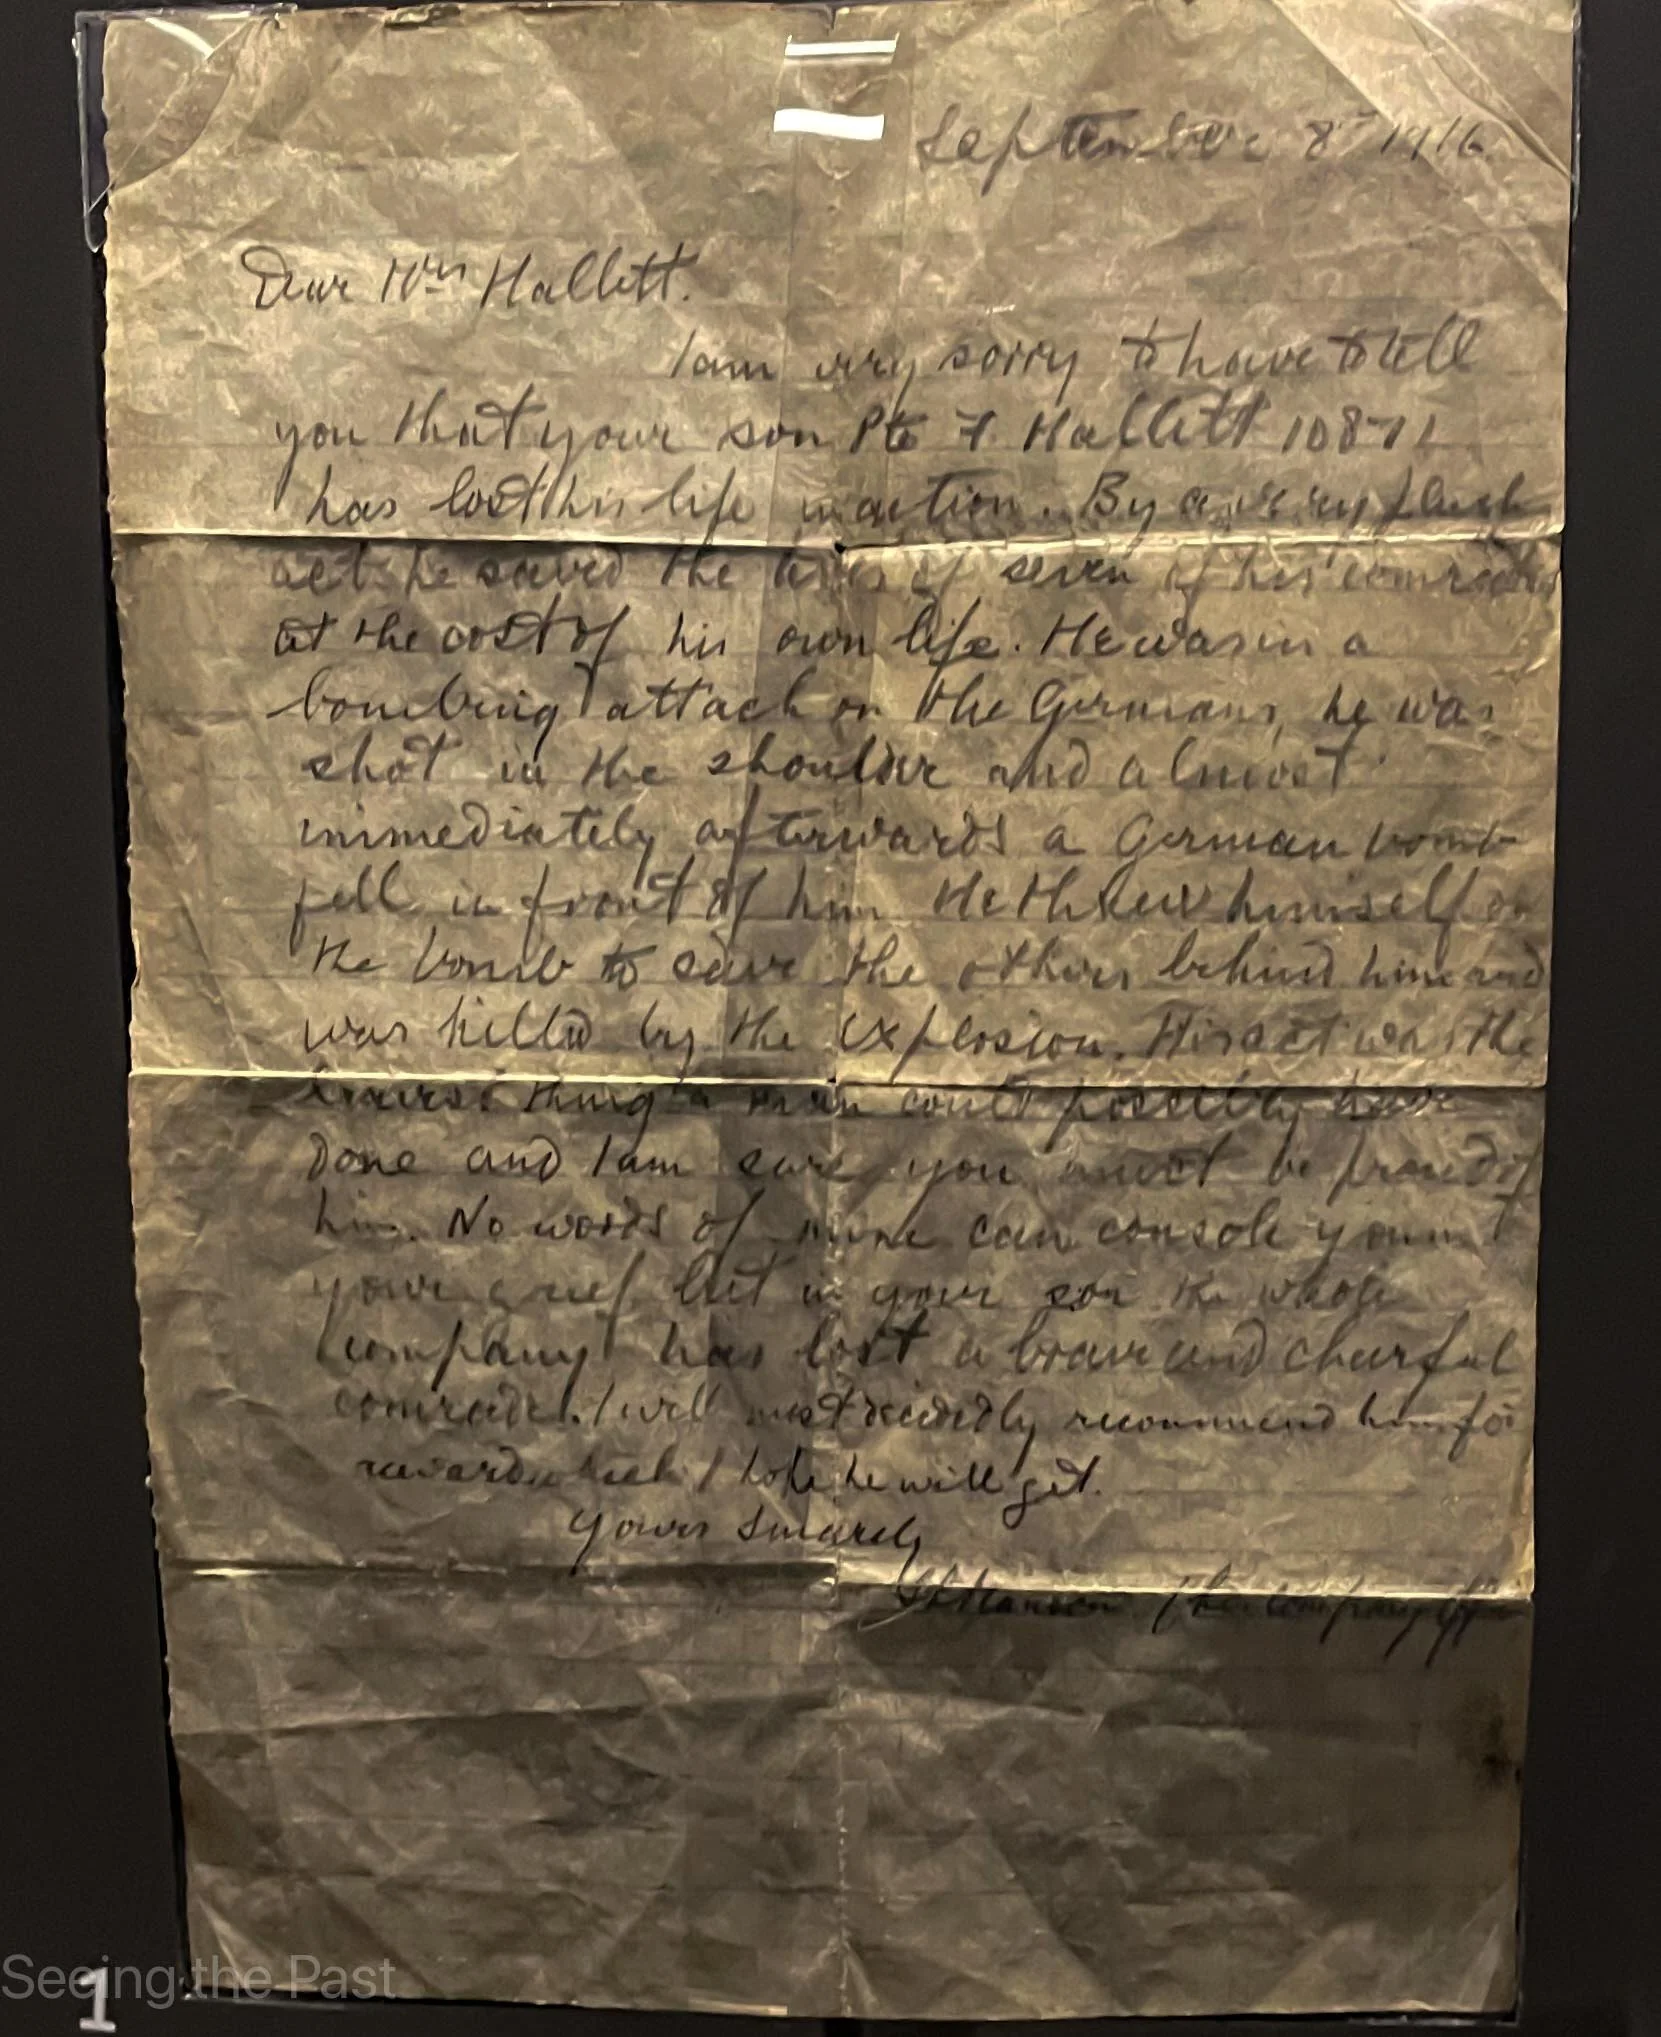 September 8th 1916
Dear Mrs Hallett.
I am very sorry to have to tell
you that your son Pte F. Hallett 10871
has lost his life in action. By a very pluck
act he saved the lives of seven of his comrades
at the cost of his own life. He was in a
bombing attack on the Germans, he was
shot in the shoulder and almost
immediately afterwards a German bomb
fell in front of him He threw himself on
the bomb to save the others behind him and
was killed by the explosion. His act was the
bravest thing a man could possibly have
done and I am sure you must be proud of
him. No words of mine can console you in
your grief but in your son the whole
company has lost a brave and cheerful
comrade. I will most decidedly recommend him for
reward which I hope he will get.
Yours Sincerely
company
Seeing the Past
1